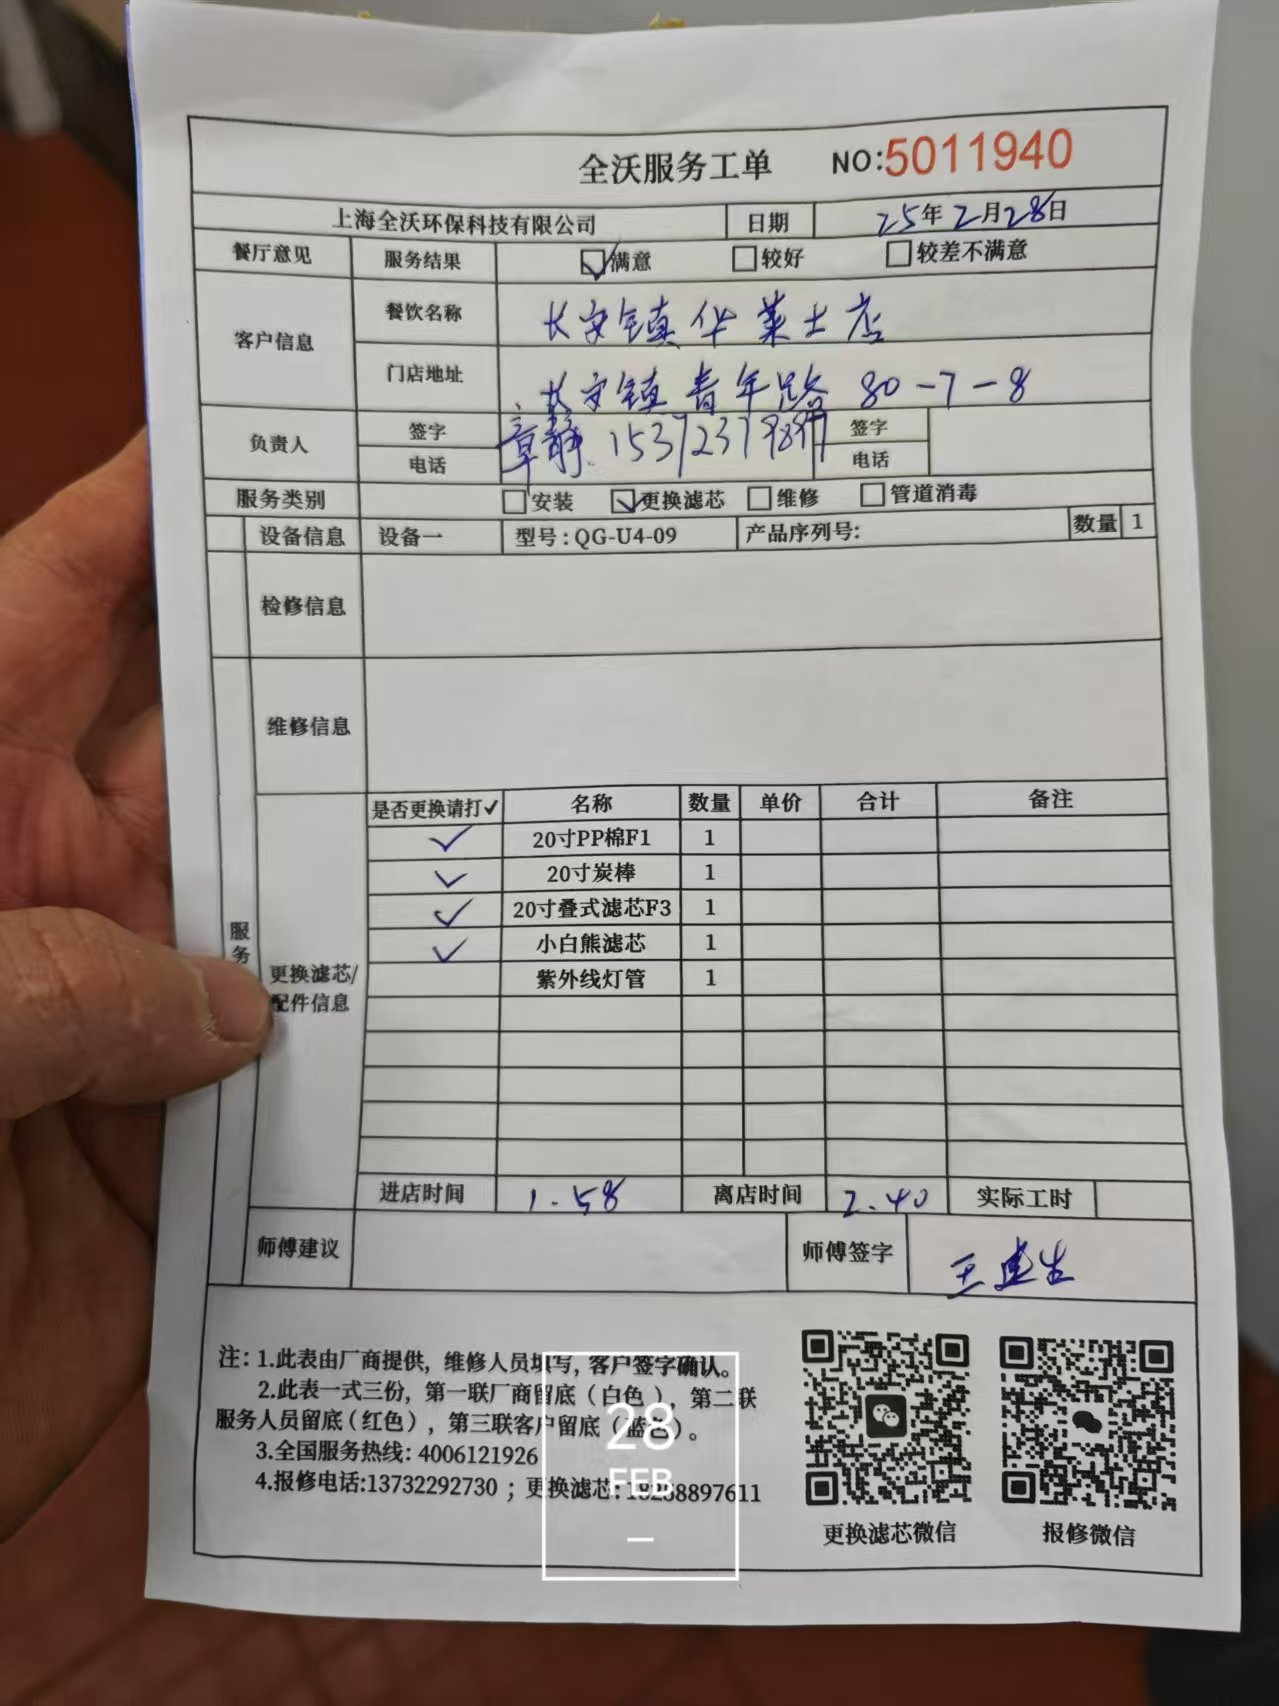 全沃服务工单 NO:5011940
上海全沃环保科技有限公司 日期 25年2月28日
餐厅意见 服务结果 ☑满意 □较好 □较差不满意
客户信息 餐饮名称 长安镇华莱士店
门店地址 长安镇青年路 80-7-8
负责人 签字 章静. 签字
电话 15372379897 电话
服务类别 □安装 ☑更换滤芯 □维修 □管道消毒
设备信息 设备一 型号:QG-U4-09 产品序列号: 数量 1
检修信息
维修信息
服务
更换滤芯/
配件信息
是否更换请打✓ 名称 数量 单价 合计 备注
✓ 20寸PP棉F1 1
✓ 20寸炭棒 1
✓ 20寸叠式滤芯F3 1
✓ 小白熊滤芯 1
紫外线灯管 1
进店时间 1.58 离店时间 2.40 实际工时
师傅建议 师傅签字 王建生
注: 1.此表由厂商提供, 维修人员填写, 客户签字确认。
2.此表一式三份, 第一联厂商留底(白色), 第二联
服务人员留底(红色), 第三联客户留底(蓝色)。
3.全国服务热线: 4006121926
4.报修电话:13732292730 ; 更换滤芯:18268897611
更换滤芯微信 报修微信
28
FEB